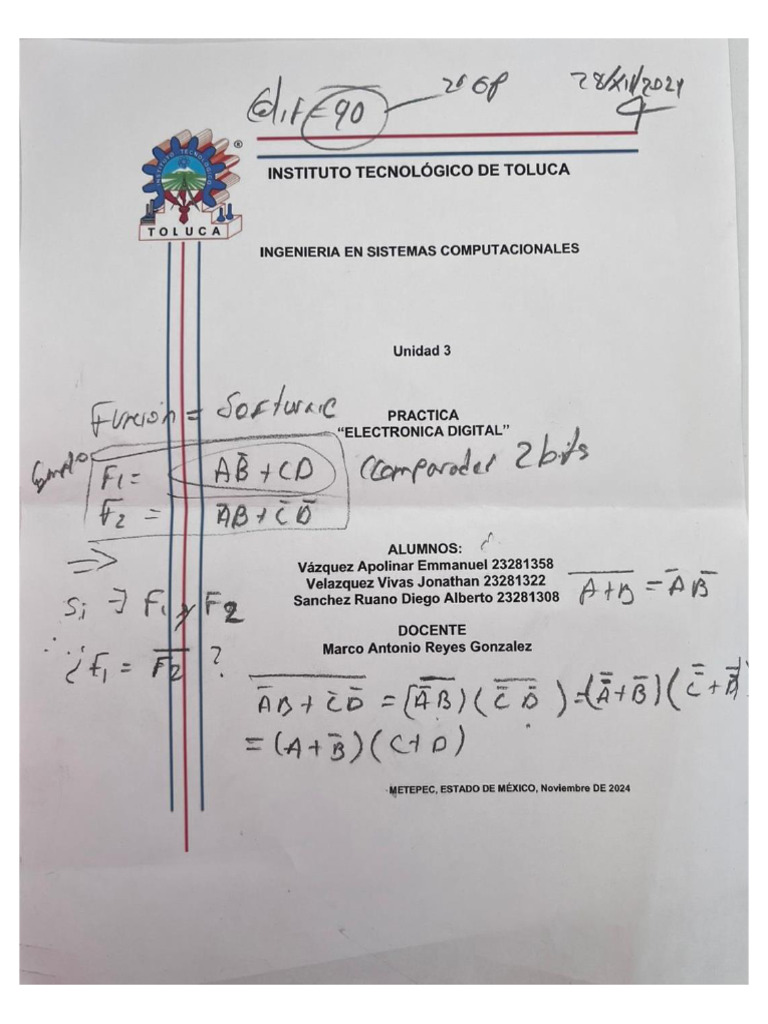 Calif = 90
28/XII/2024
INSTITUTO TECNOLÓGICO DE TOLUCA
INSTITUTO TECNOLOGICO
TOLUCA
®
INGENIERIA EN SISTEMAS COMPUTACIONALES
Unidad 3
PRACTICA
“ELECTRONICA DIGITAL”
Función = Software
Ejemplo
F₁ = AB̅ + CD
Comparador 2 bits
F₂ = A̅B + C̅ D̅
⇒
ALUMNOS:
Vázquez Apolinar Emmanuel 23281358
Velazquez Vivas Jonathan 23281322
Sanchez Ruano Diego Alberto 23281308
\overline{A+B} = A̅ B̅
Si ∃ F₁ y F₂
DOCENTE
Marco Antonio Reyes Gonzalez
∴ ¿F₁ = \overline{F₂} ?
\overline{A̅B + C̅D̅} = (\overline{A̅B})(\overline{C̅ D̅}) = (\overline{A̅}+B̅)(\overline{C̅}+\overline{D̅})
= (A+B̅)(C+D)
METEPEC, ESTADO DE MÉXICO, Noviembre DE 2024